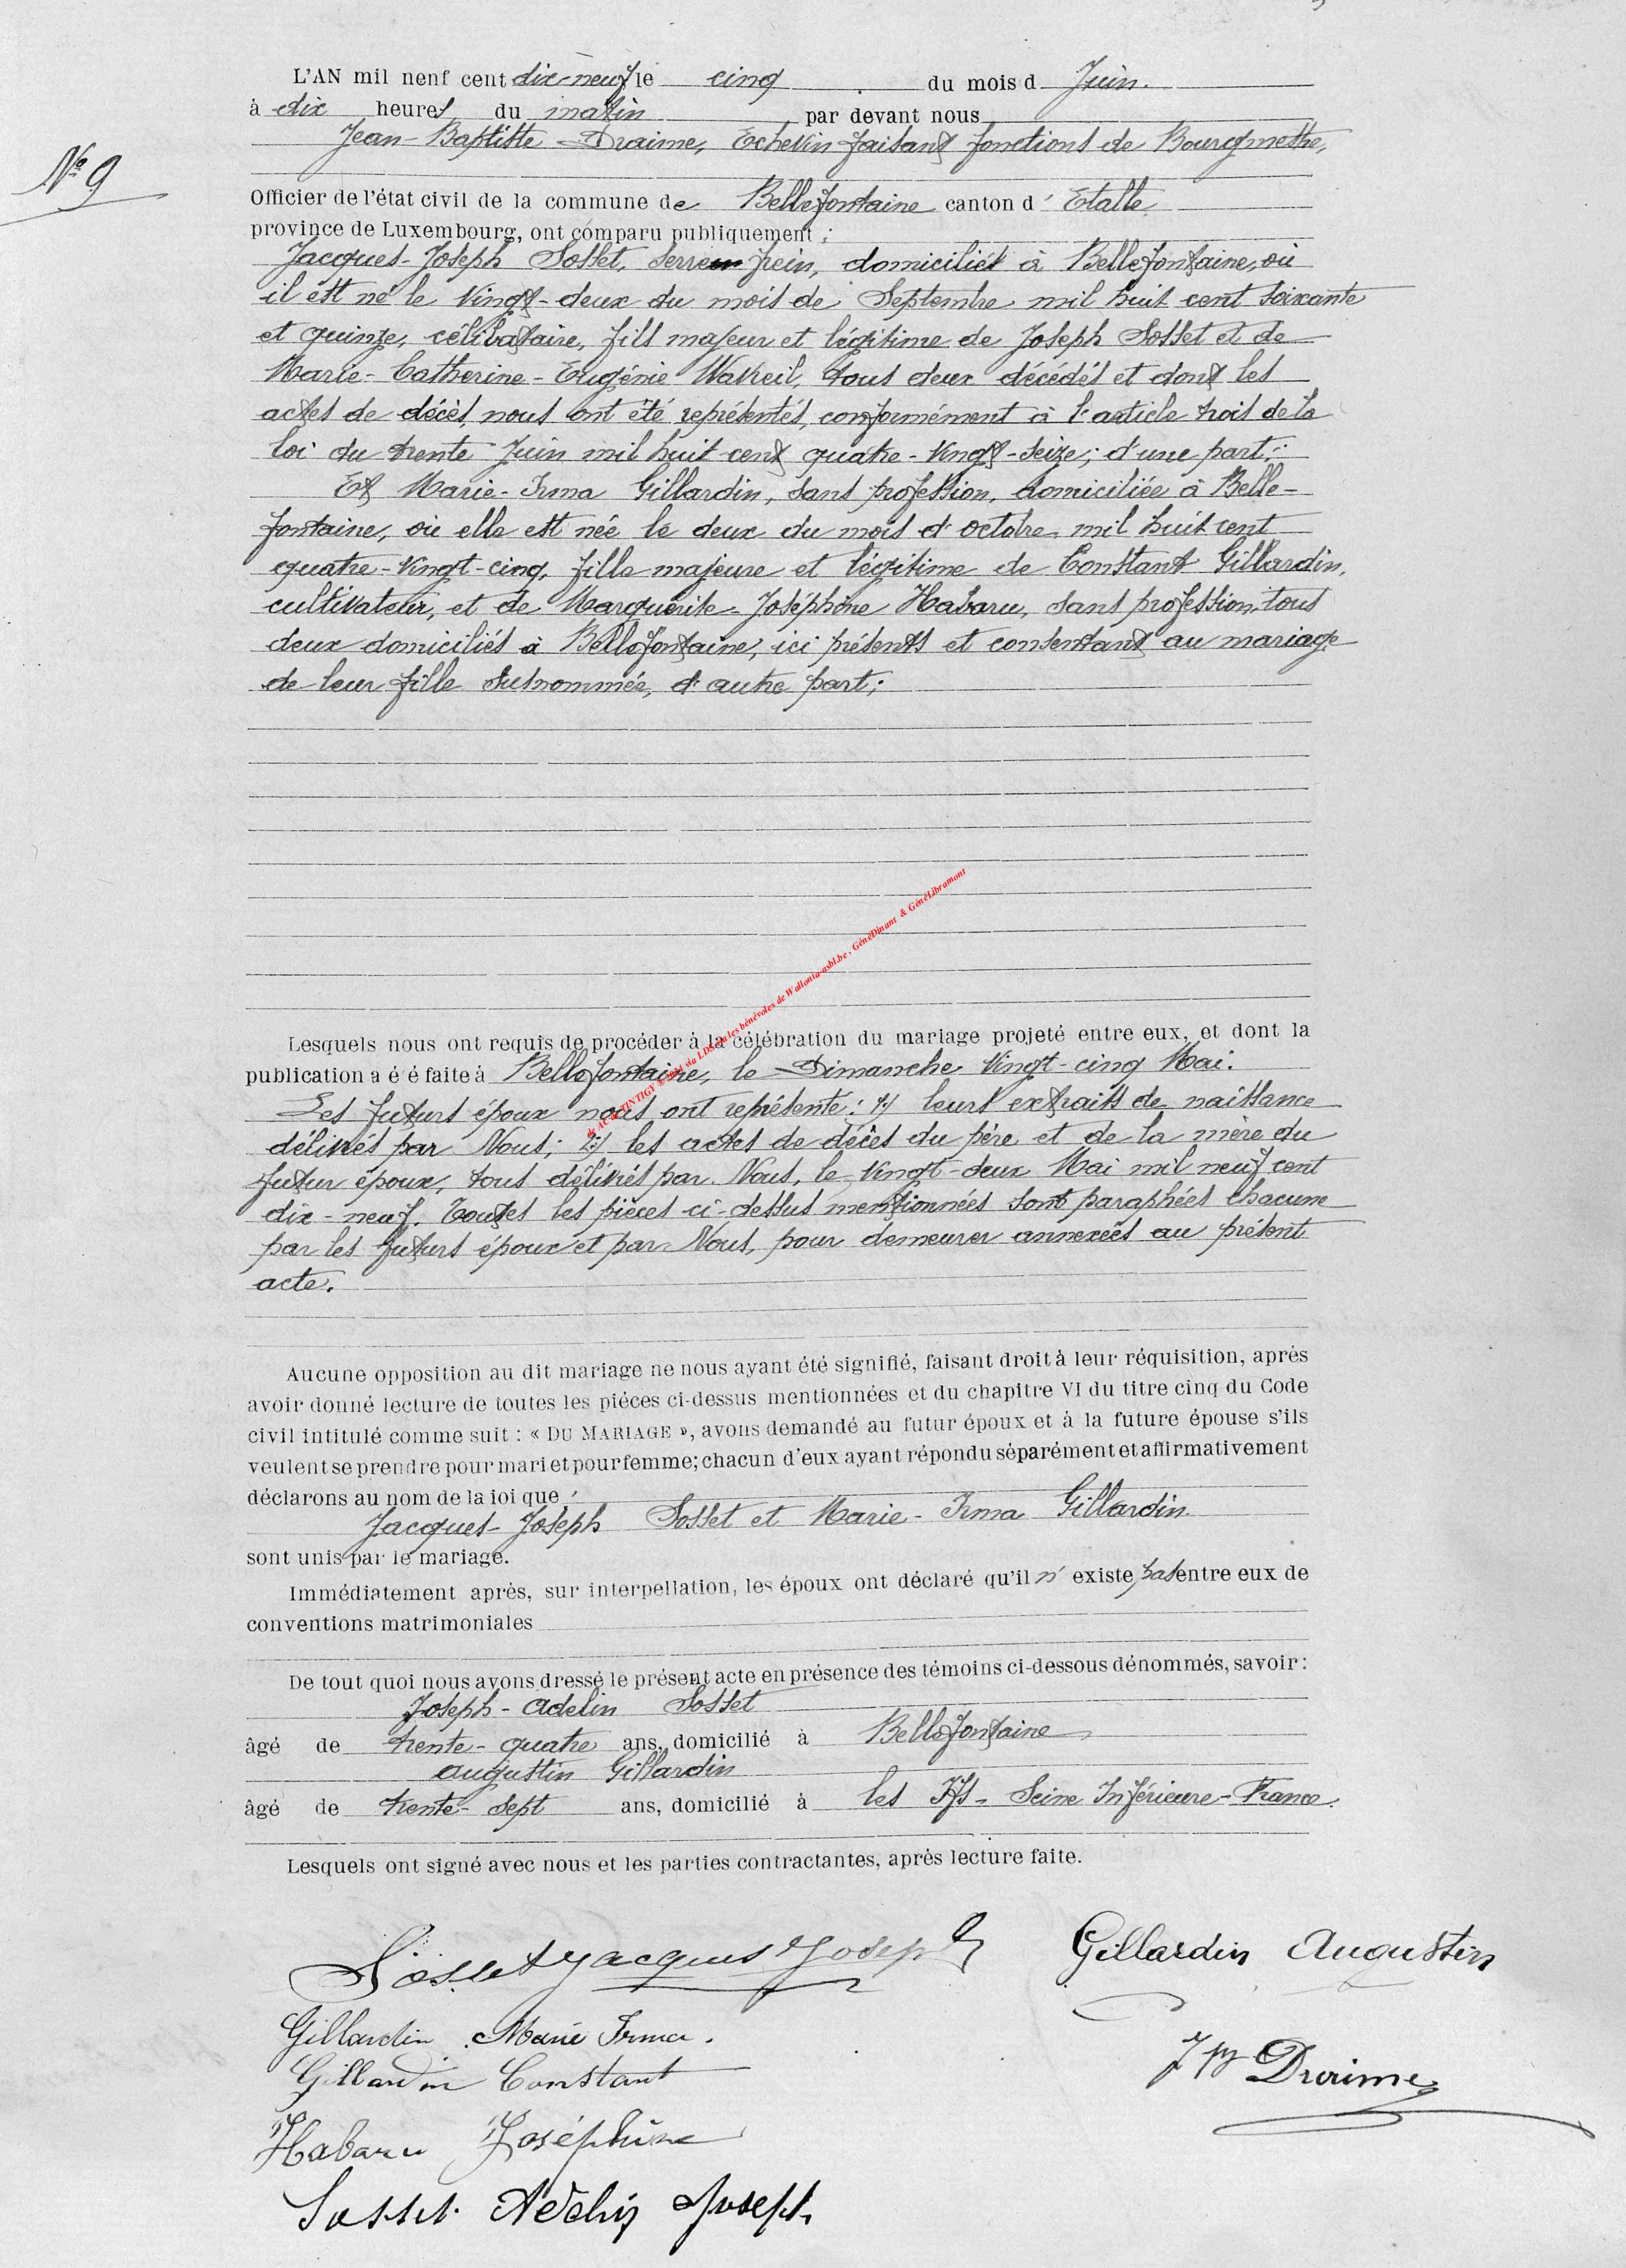 L'AN mil nenf cent dix-neuf le cinq du mois d Juin.
à dix heures du matin par devant nous
Jean-Baptiste Draime, Echevin faisant fonctions de Bourgmestre,
N° 9
Officier de l'état civil de la commune de Bellefontaine canton d' Etalle
province de Luxembourg, ont comparu publiquement :
Jacques-Joseph Sosset, serre frein, domicilié à Bellefontaine, où
il est né le vingt-deux du mois de Septembre mil huit cent soixante
et quinze, célibataire, fils majeur et légitime de Joseph Sosset et de
Marie-Catherine-Eugénie Watreil, tous deux décédés et dont les
actes de décès nous ont été représentés, conformément à l'article trois de la
loi du trente Juin mil huit cent quatre-vingt-seize; d'une part;
Et Marie-Irma Gillardin, sans profession, domiciliée à Belle-
fontaine, où elle est née le deux du mois d'octobre mil huit cent
quatre-vingt-cinq, fille majeure et légitime de Constant Gillardin,
cultivateur, et de Marguerite-Joséphine Habaru, sans profession, tous
deux domiciliés à Bellefontaine, ici présents et consentant au mariage
de leur fille susnommée, d'autre part;
Lesquels nous ont requis de procéder à la célébration du mariage projeté entre eux, et dont la
publication a é é faite à Bellefontaine, le Dimanche vingt-cinq Mai.
Les futurs époux nous ont représenté: 1:) leurs extraits de naissance
délivrés par Nous; 2:) les actes de décès du père et de la mère du
futur époux, tous délivrés par Nous, le vingt-deux Mai mil neuf cent
dix-neuf. Toutes les pièces ci-dessus mentionnées sont paraphées chacune
par les futurs époux et par Nous, pour demeurer annexées au présent
acte.
de AC de TINTIGY © 2021 via LDS via les bénévoles de Wallonia-asbl.be, GénéDinant & GénéLibramont
Aucune opposition au dit mariage ne nous ayant été signifié, faisant droit à leur réquisition, après
avoir donné lecture de toutes les piéces ci-dessus mentionnées et du chapitre VI du titre cinq du Code
civil intitulé comme suit : « DU MARIAGE », avons demandé au futur époux et à la future épouse s'ils
veulent se prendre pour mari et pour femme; chacun d'eux ayant répondu séparément et affirmativement
déclarons au nom de la loi que :
Jacques-Joseph Sosset et Marie-Irma Gillardin
sont unis par le mariage.
Immédiatement après, sur interpellation, les époux ont déclaré qu'il n' existe pas entre eux de
conventions matrimoniales
De tout quoi nous avons dressé le présent acte en présence des témoins ci-dessous dénommés, savoir :
Joseph-Adelin Sosset
âgé de trente-quatre ans, domicilié à Bellefontaine
Augustin Gillardin
âgé de trente-sept ans, domicilié à les Ifs-Seine Inférieure-France.
Lesquels ont signé avec nous et les parties contractantes, après lecture faite.
Sosset Jacques Joseph
Gillardin Augustin
Gillardin Marie Irma.
Gillardin Constant
JB Draime
Habaru Joséphine
Sosset Joseph